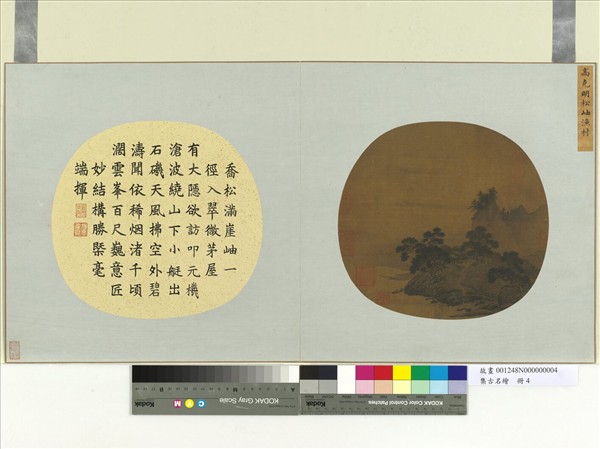 高克明松岫漁村
喬松滿崖岫一
徑入翠微茅屋
有大隱欲訪叩元機
滄波繞山下小艇出
石磯天風拂空外碧
濤聞依稀烟渚千頃
濶雲峯百尺巍意匠
妙結構勝槩毫
端揮
故畫 001248N000000004
集古名繪 冊 4
Kodak
C Y M
KODAK Gray Scale
Kodak
KODAK Color Control Patches